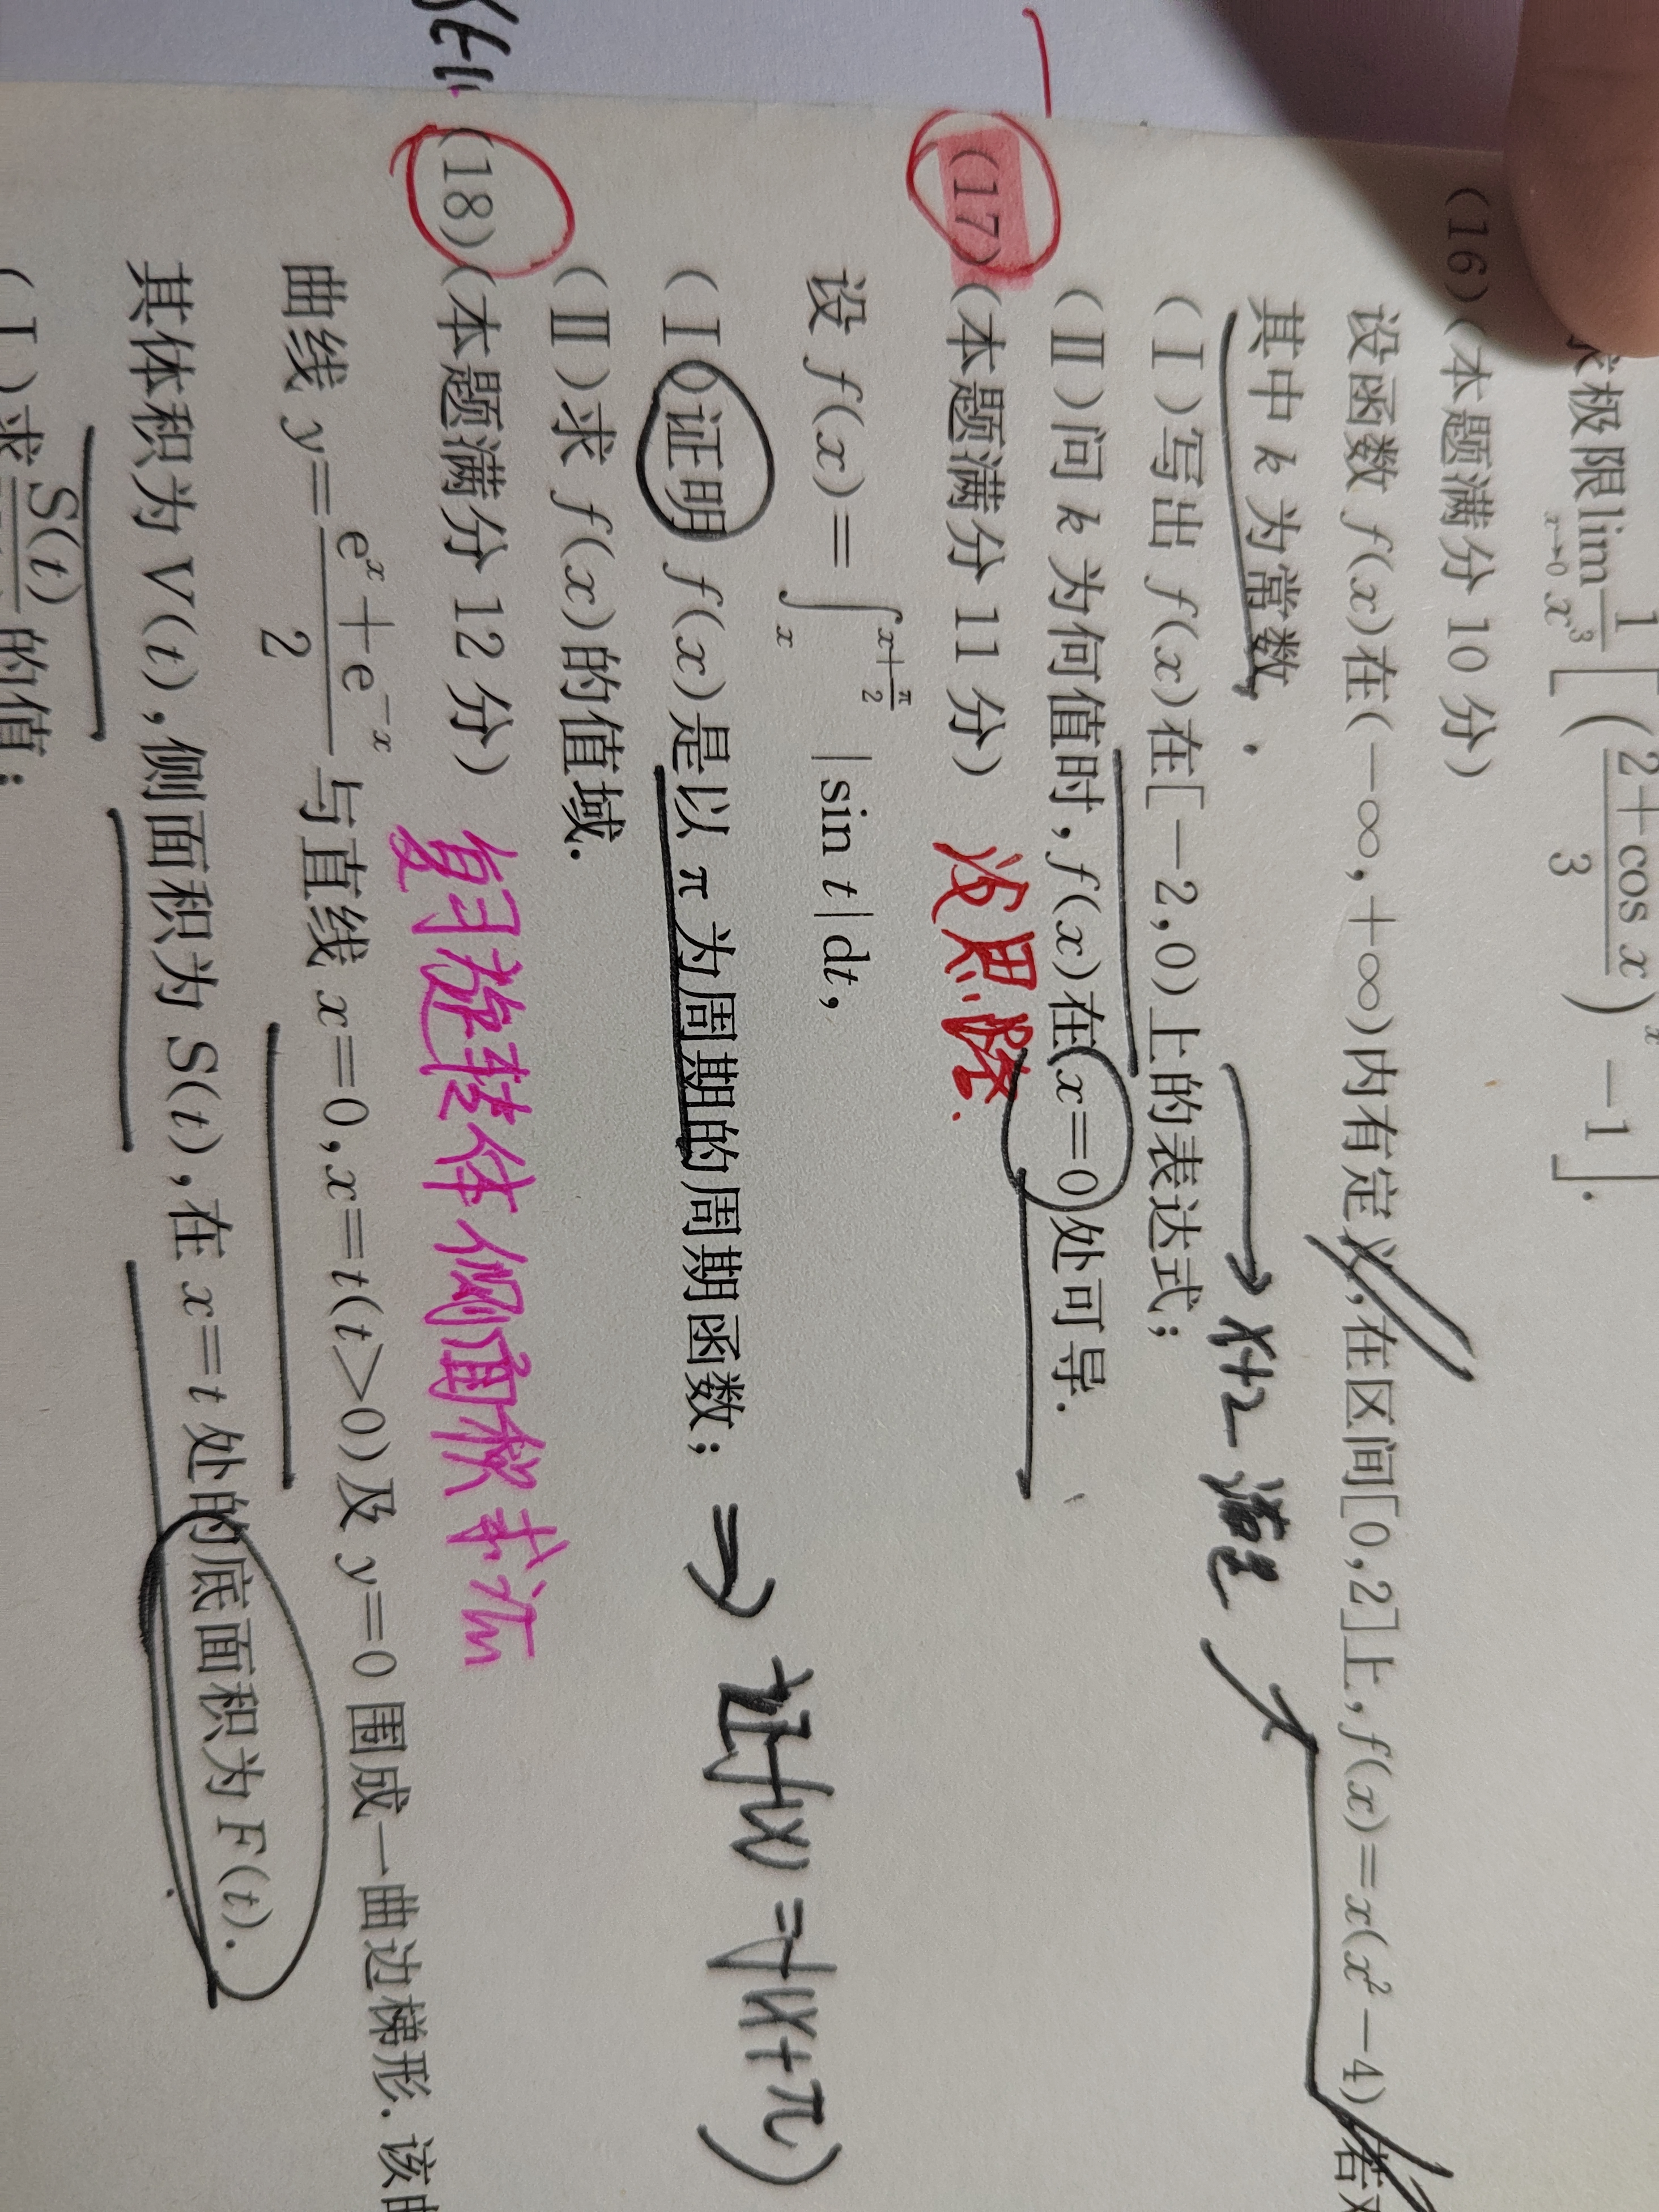 求极限lim x→0 1/x³[((2+cos x)/3)^x −1].
(16)(本题满分 10 分)
设函数 f(x)在(−∞,+∞)内有定义,在区间[0,2]上,f(x)=x(x²−4),若对
其中 k 为常数.
(Ⅰ)写出 f(x)在[−2,0)上的表达式;
x+2
(Ⅱ)问 k 为何值时,f(x)在 x=0 处可导.
(17)(本题满分 11 分) 没思路.
设 f(x)=∫_x^{x+π/2} |sin t|dt,
(Ⅰ)证明 f(x)是以 π 为周期的周期函数; ⇒ 证f(x)=f(x+π)
(Ⅱ)求 f(x)的值域.
(18)(本题满分 12 分) 复习旋转体侧面积求法
曲线 y=(eˣ+e⁻ˣ)/2 与直线 x=0,x=t(t>0)及 y=0 围成一曲边梯形.该曲
其体积为 V(t),侧面积为 S(t),在 x=t 处的底面积为 F(t).
(Ⅰ)求 S(t) 的值;